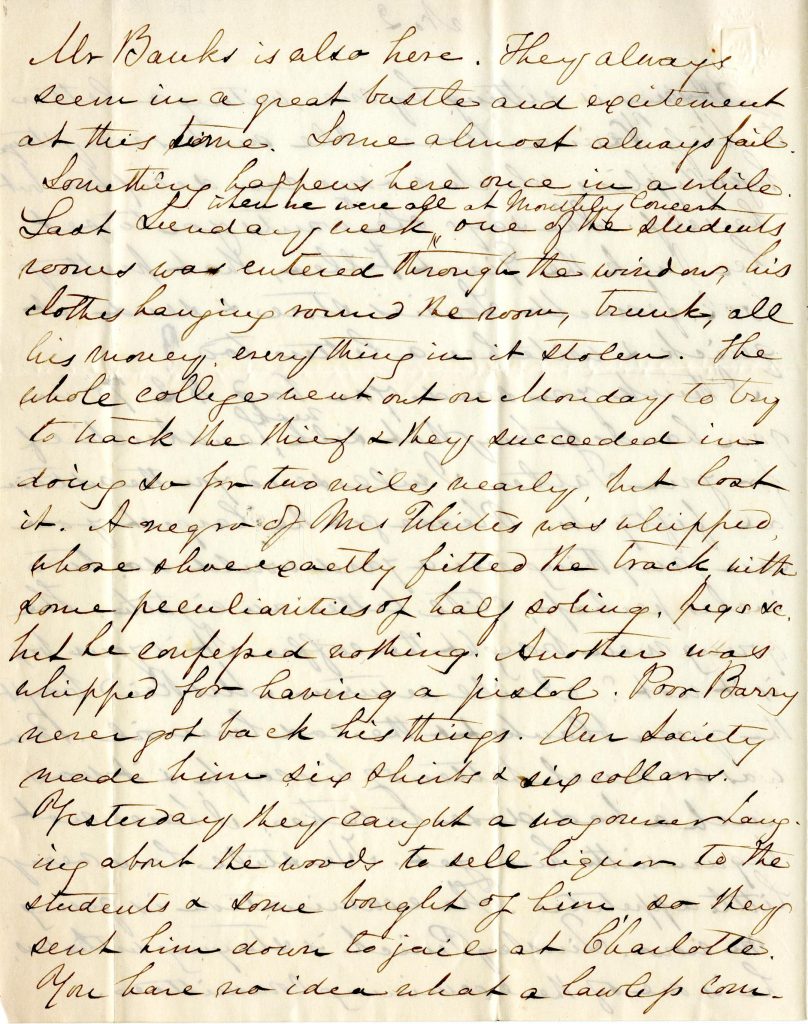 Mr Banks is also here. They always
seem in a great bustle and excitement
at this time. Some almost always fail.
Something happens here once in a while.
when we were all at Monthly Concert
Last Sunday week one of the students
rooms was entered through the window, his
clothes hanging round the room, trunk, all
his money, everything in it stolen. The
whole college went out on Monday to try
to track the thief & they succeeded in
doing so for two miles nearly, but lost
it. A negro of Mrs was whipped,
whose shoe exactly fitted the track with
some peculiarities of half soling, pegs &c.
but he confessed nothing. Another was
whipped for having a pistol. Poor Barry
never got back his things. Our Society
made him six shirts & six collars.
Yesterday they caught a wagoner hang-
ing about the woods to sell liquor to the
students & some bought of him so they
sent him down to jail at Charlotte.
You have no idea what a lawless com-